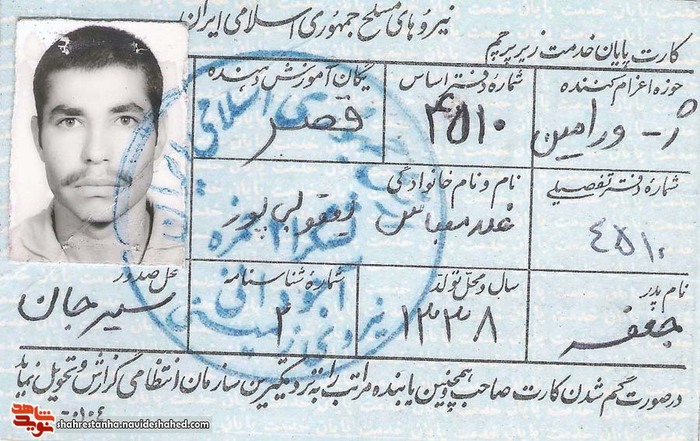 نیروهای مسلح جمهوری اسلامی ایران
کارت پایان خدمت زیر پرچم
حوزه اعزام کننده
ورامین
شماره دفتر اساس
۴۵۱۰
یگان آموزش دهنده
قصر
شماره دفتر تفصیلی
۴۵۱۰
نام و نام خانوادگی
یعقوب پور
نام پدر
جعفر
سال و محل تولد
۱۳۳۸
شماره شناسنامه
۲
محل صدور
سیرجان
درصورت گم شدن کارت صاحب و همچنین یابنده مراتب را به نزدیکترین سازمان انتظامی گزارش و تحویل نماید
جمهوری اسلامی ایران
لشکر ۲۱ حمزه
نیروی زمینی
نوید شاهد
shahrestanha.navideshahed.com